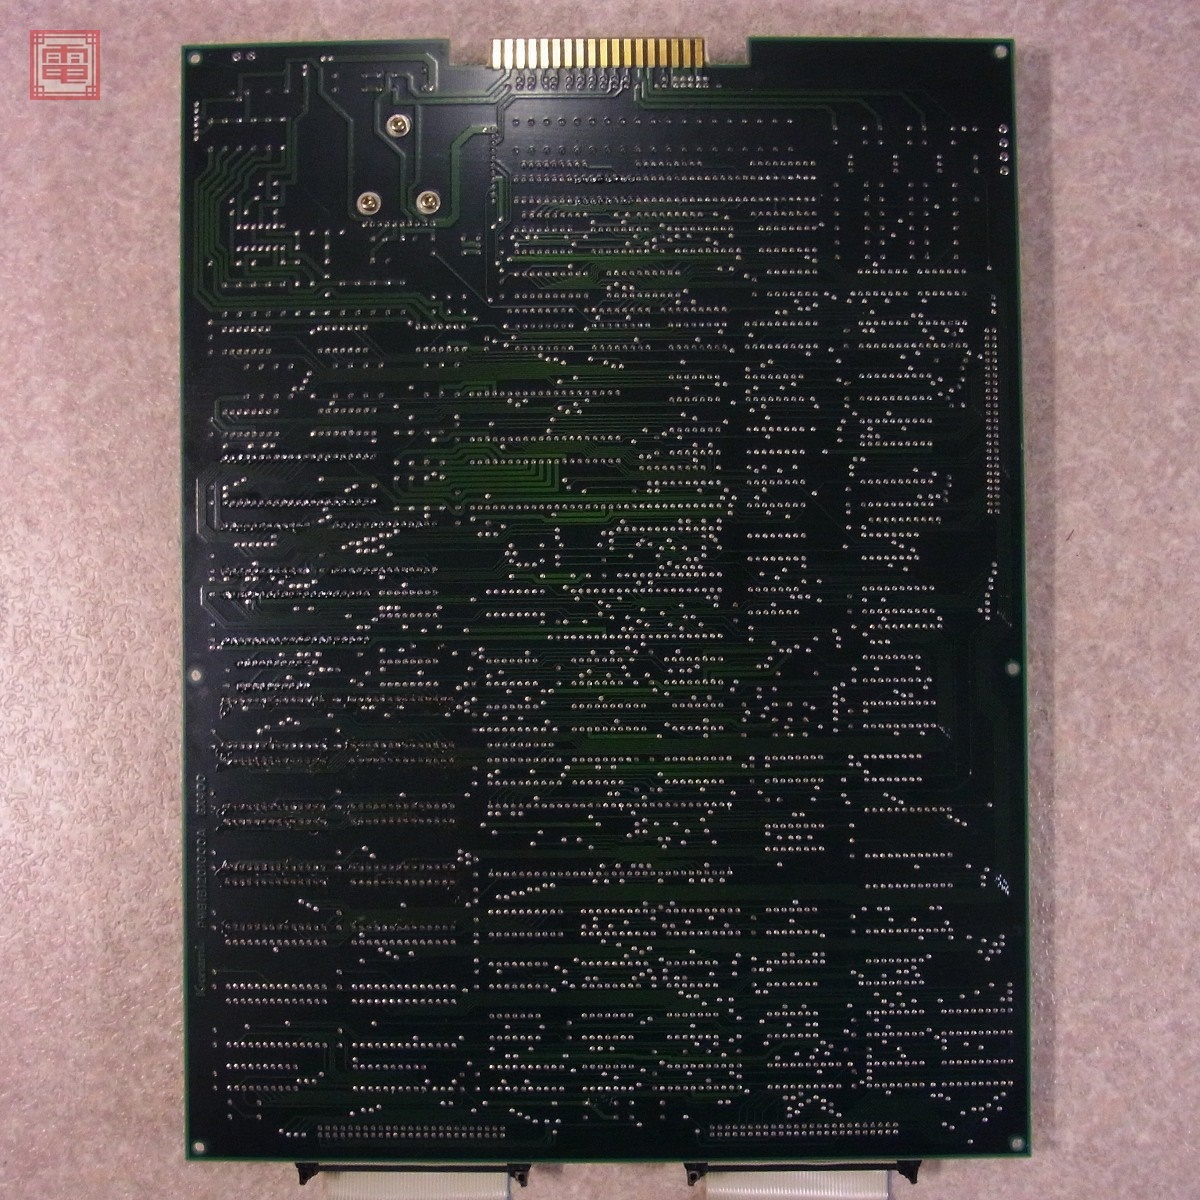 電
Konami PWB(B)201000A GX400